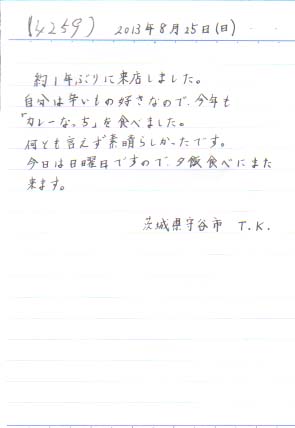 (4259) 2013年8月25日(日)
約1年ぶりに来店しました。
自分は辛いもの好きなので、今年も
「カレーなっち」を食べました。
何とも言えず素晴らしかったです。
今日は日曜日ですので、夕飯食べにまた
来ます。
茨城県守谷市 T.K.